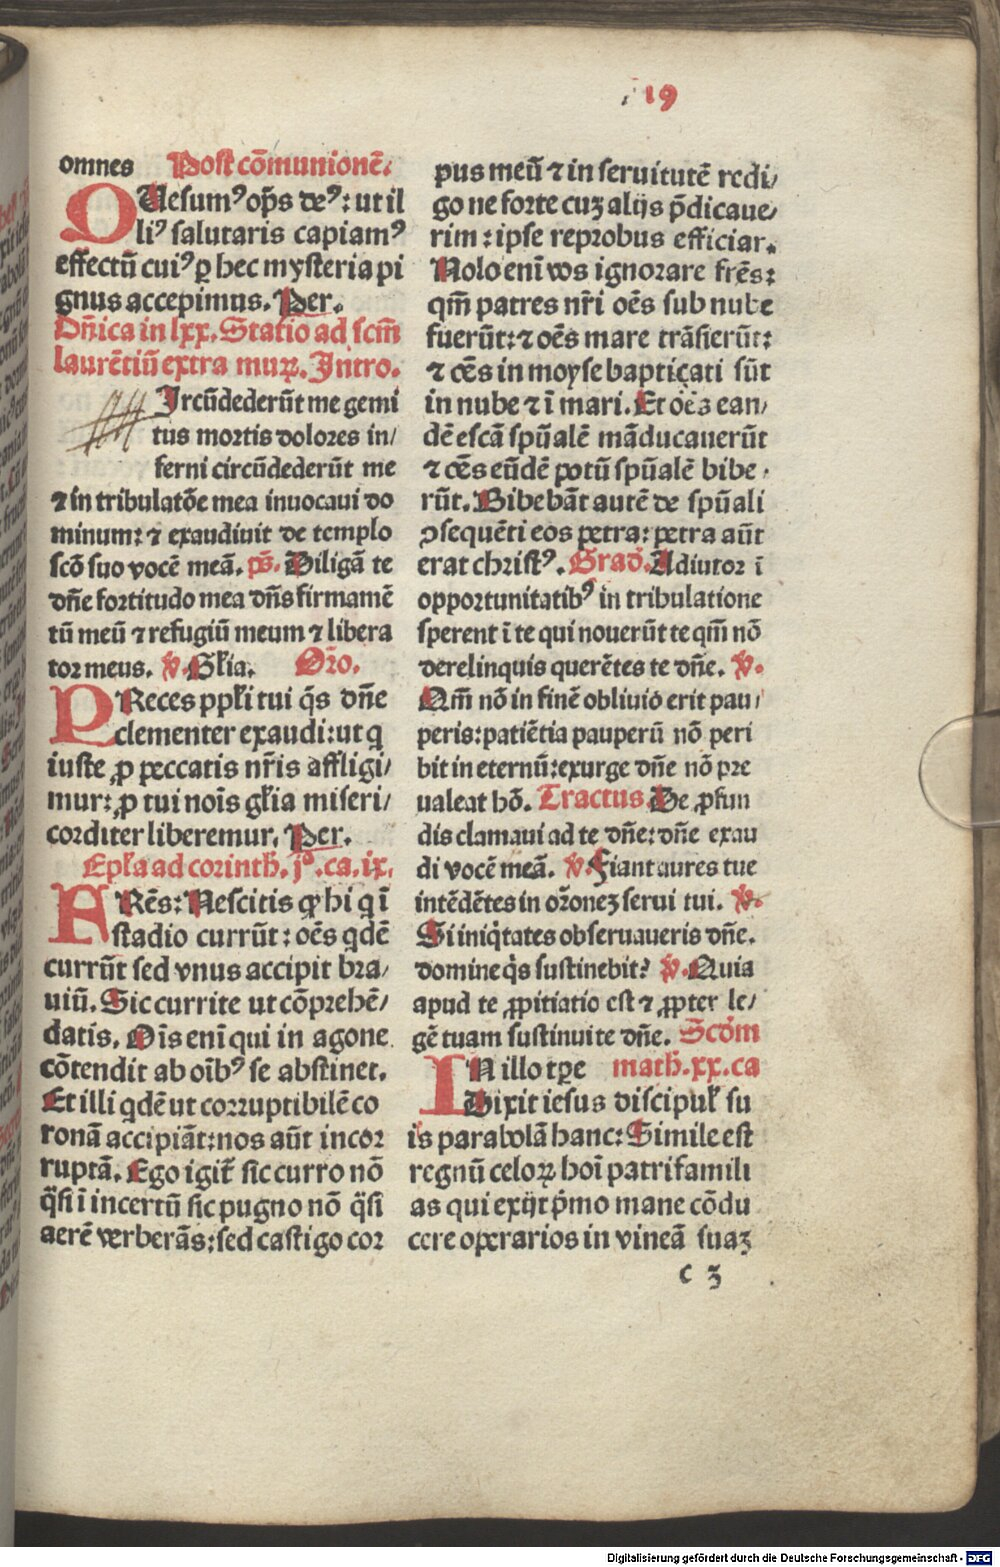 19
omnes Post cōmunionē.
QUesumꝰ op̄s deꝰ: ut il
liꝰ salutaris capiamꝰ
effectū cuiꝰ ꝑ hec mysteria pi
gnus accepimus. Per.
Dn̄ica in lxx. Statio ad scm̄
laurētiū extra muꝝ. Intro.
Ircūdederūt me gemi
tus mortis dolores in/
ferni circūdederūt me
⁊ in tribulatōe mea inuocaui do
minum: ⁊ exaudiuit de templo
scō suo vocē meā. ps̄. Diligā te
dn̄e fortitudo mea dn̄s firmamē
tū meū ⁊ refugiū meum ⁊ libera
tor meus. ℣. Gl̄ia. Oro.
PReces ppl̄i tui q̄s dn̄e
clementer exaudi: ut q
iuste ꝓ peccatis nr̄is affligi/
mur: ꝓ tui noīs gl̄ia miseri/
corditer liberemur. Per.
Epl̄a ad corinth. j°. ca. ix.
FRēs: Nescitis ꝙ hi q ī
stadio currūt: oēs qdē
currūt sed vnus accipit bra/
uiū. Sic currite ut cōprehē/
datis. Oīs enī qui in agone
cōtendit ab oībꝰ se abstinet.
Et illi qdē ut corruptibilē co
ronā accipiāt: nos aūt incor
ruptā. Ego igit̄ sic curro nō
q̄si ī incertū sic pugno nō q̄si
aerē verberās: sed castigo cor
pus meū ⁊ in seruitutē redi/
go ne forte cuꝫ alijs p̄dicaue/
rim: ipse reprobus efficiar.
Nolo enī vos ignorare frēs:
qm̄ patres nr̄i oēs sub nube
fuerūt: ⁊ oēs mare trāsierūt:
⁊ oēs in moyse baptiçati sūt
in nube ⁊ ī mari. Et oēs ean/
dē escā spūalē māducauerūt
⁊ oēs eūdē potū spūalē bibe/
rūt. Bibebāt autē de spūali
ꝯsequēti eos petra: petra aūt
erat christꝰ. Grad. Adiutor ī
opportunitatibꝰ in tribulatione
sperent ī te qui nouerūt te qm̄ nō
derelinquis querētes te dn̄e. ℣.
Qm̄ nō in finē obliuio erit pau/
peris: patiētia pauperū nō peri
bit in eternū: exurge dn̄e nō pre
ualeat hō. Tractus. De ꝓfun
dis clamaui ad te dn̄e: dn̄e exau
di vocē meā. ℣. Fiant aures tue
intēdētes in or̄oneꝫ serui tui. ℣.
Si iniq̇tates obseruaueris dn̄e.
domine q̇s sustinebit? ℣. Quia
apud te ꝓpitiatio est ⁊ ꝓpter le/
gē tuam sustinui te dn̄e. Scd̄m
IN illo tꝑe math. xx. ca
Dixit iesus discipul̄ su
is parabolā hanc: Simile est
regnū celoꝝ hoī patrifamili
as qui exijt p̄mo mane cōdu
cere operarios in vineā suaꝫ
c 3
Digitalisierung gefördert durch die Deutsche Forschungsgemeinschaft - DFG